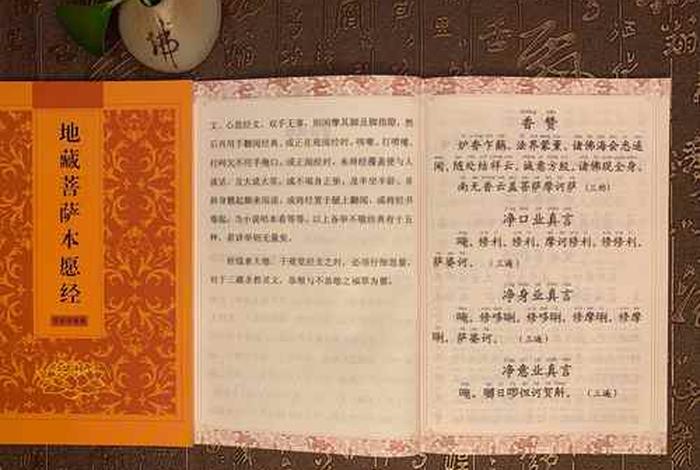 佛
地藏菩萨本愿经
文、心思经文，双手无事，则闲摩其脚及脚指隙，然
后再用手翻阅经典。或正在观阅经时，咳嗽、打喷嚏、
打呵欠不用手掩口。或正阅经时，未将经覆盖便与人
谈话，及大说大笑。或不端身正坐，及半坐半卧，并
斜身翘起脚来阅读。或将经置于腿上翻阅，或将经书
卷起，当小说唱本看等等。以上各举不敬经典有十五
种，若详举则无量矣。
于观览经文之时，必须仔细思量，
对于三藏圣教灵文，恭敬与不恭敬之福罪为要。
香赞
炉香乍爇，法界蒙薰，诸佛海会悉遥
闻，随处结祥云，诚意方殷，诸佛现全身。
南无香云盖菩萨摩诃萨（三称）
净口业真言
唵，修利，修利，摩诃修利，修修利，
萨婆诃。（三遍）
净身业真言
唵，修哆唎，修哆唎，修摩唎，修摩
唎，萨婆诃。（三遍）
净意业真言
唵，嚩日啰怛诃贺斛。（三遍）